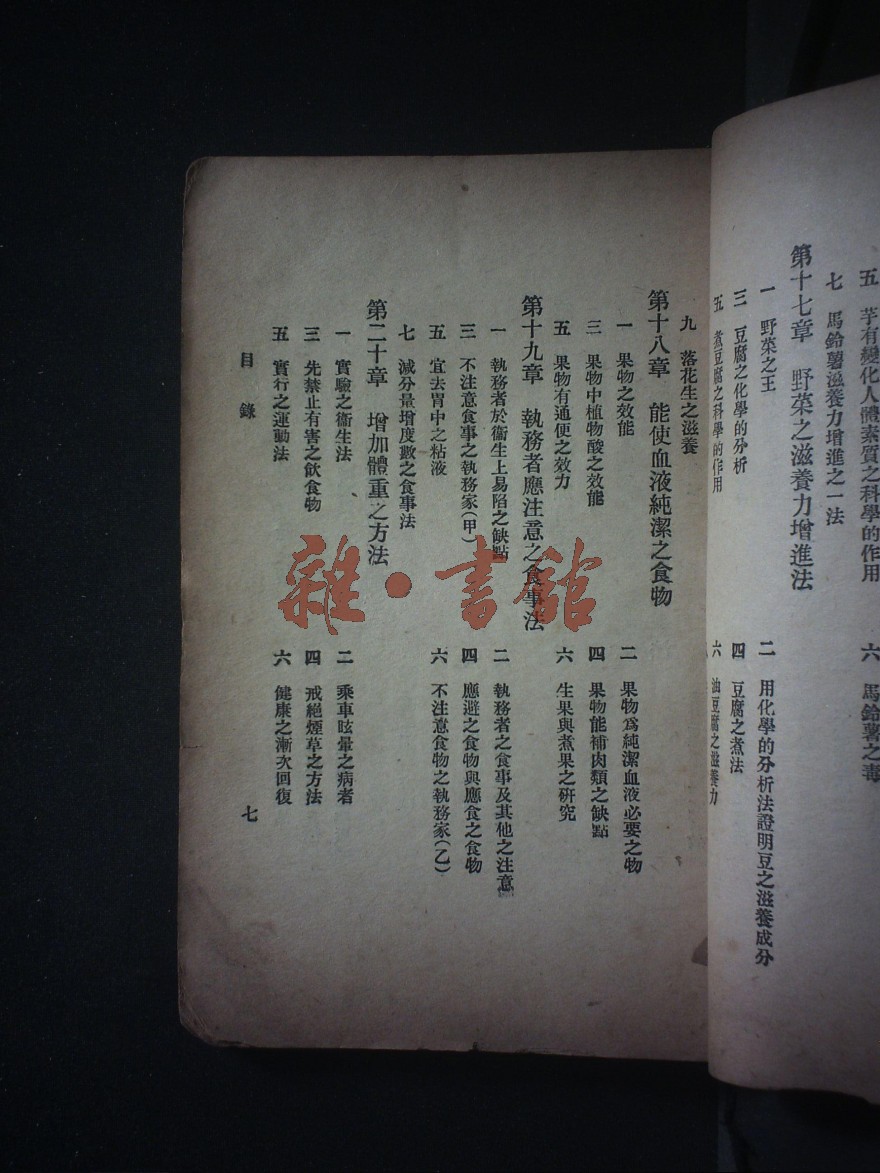 五　芋有變化人體素質之科學的作用
六　馬鈴薯之毒
七　馬鈴薯滋養力增進之一法
第十七章　野菜之滋養力增進法
一　野菜之王
二　用化學的分析法證明豆之滋養成分
三　豆腐之化學的分析
四　豆腐之煮法
五　煮豆腐之科學的作用
六　油豆腐之滋養力
九　落花生之滋養
第十八章　能使血液純潔之食物
一　果物之效能
二　果物爲純潔血液必要之物
三　果物中植物酸之效能
四　果物能補肉類之缺點
五　果物有通便之效力
六　生果與煮果之研究
第十九章　執務者應注意之食事法
一　執務者於衞生上易陷之缺點
二　執務者之食事及其他之注意
三　不注意食事之執務家(甲)
四　應避之食物與應食之食物
五　宜去胃中之粘液
六　不注意食物之執務家(乙)
七　減分量增度數之食事法
第二十章　增加體重之方法
一　實驗之衞生法
二　乘車眩暈之病者
三　先禁止有害之飲食物
四　戒絕煙草之方法
五　實行之運動法
六　健康之漸次回復
目錄
七
雜·書館